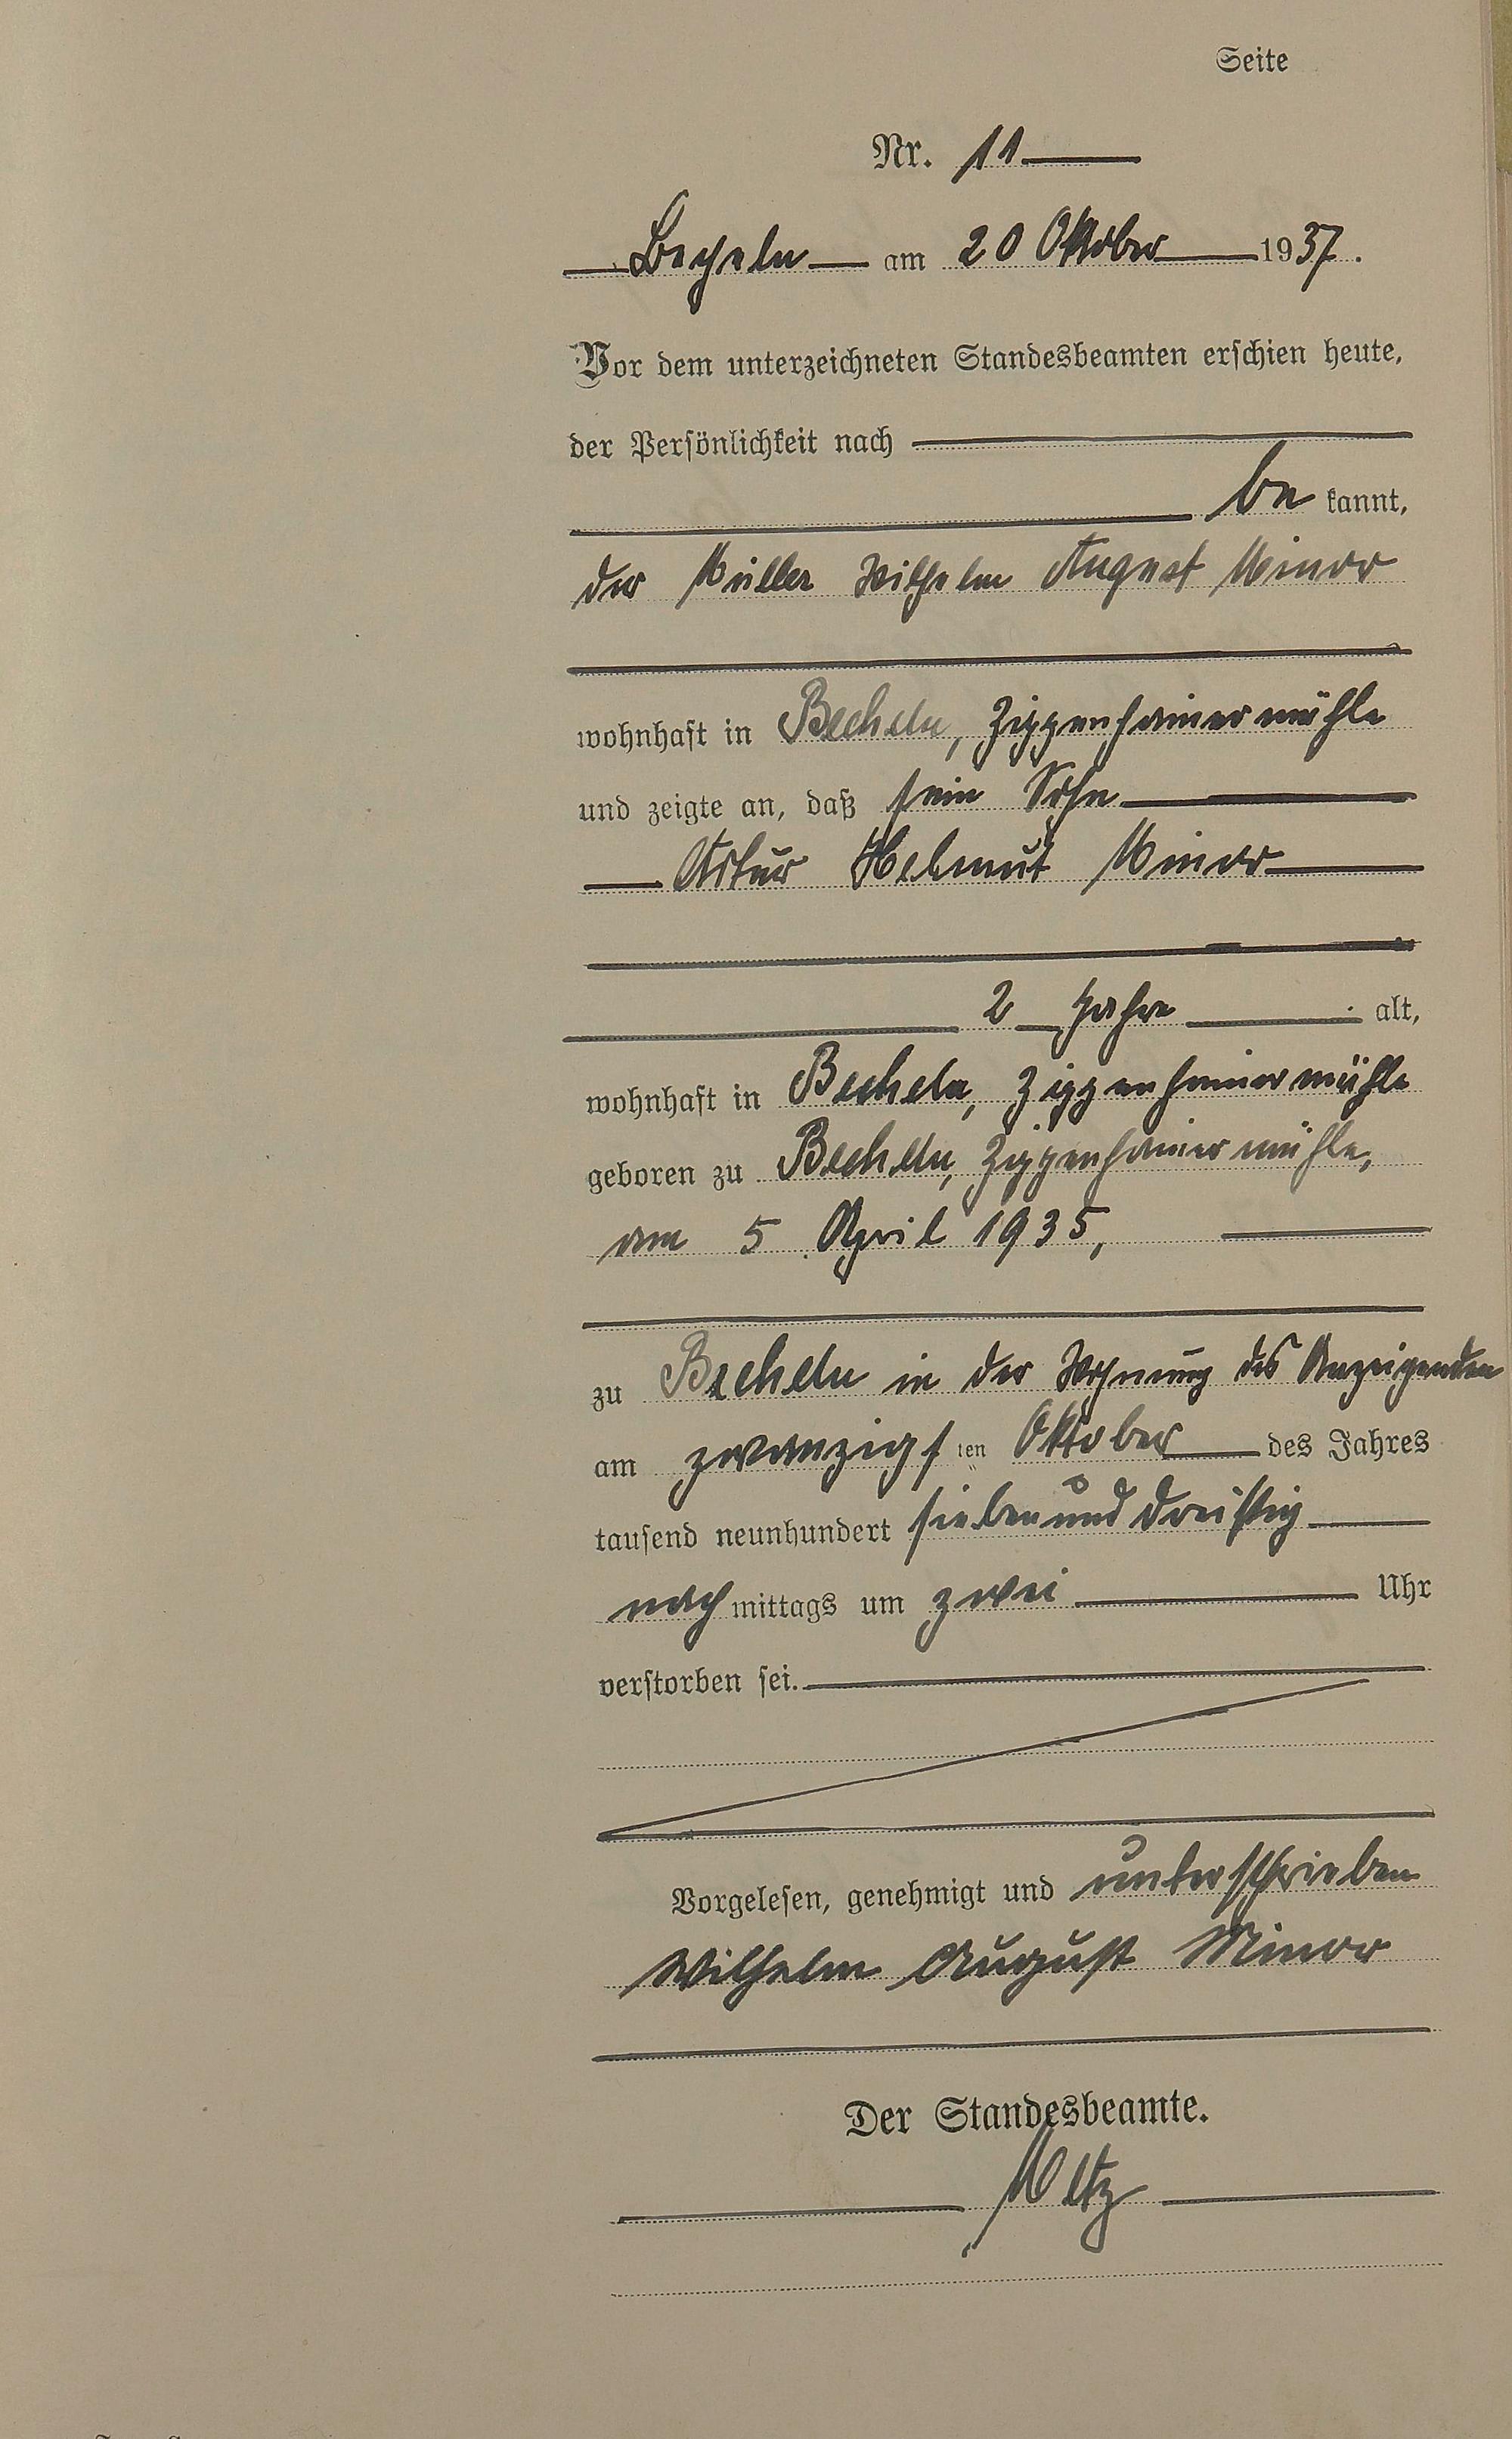 Seite
Nr. 11
Becheln am 20 Oktober 1937.
Vor dem unterzeichneten Standesbeamten erschien heute,
der Persönlichkeit nach
be kannt,
der Müller Wilhelm August Minor
wohnhaft in Becheln, Zippenhainermühle
und zeigte an, daß sein Sohn
Artur Helmut Minor
2 Jahre alt,
wohnhaft in Becheln, Zippenhainermühle
geboren zu Becheln, Zippenhainermühle,
am 5 April 1935,
zu Becheln in der Wohnung des Anzeigenden
am zwanzigs ten Oktober des Jahres
tausend neunhundert siebenunddreißig
nachmittags um zwei Uhr
verstorben sei.
Vorgelesen, genehmigt und unterschrieben
Wilhelm August Minor
Der Standesbeamte.
Metz